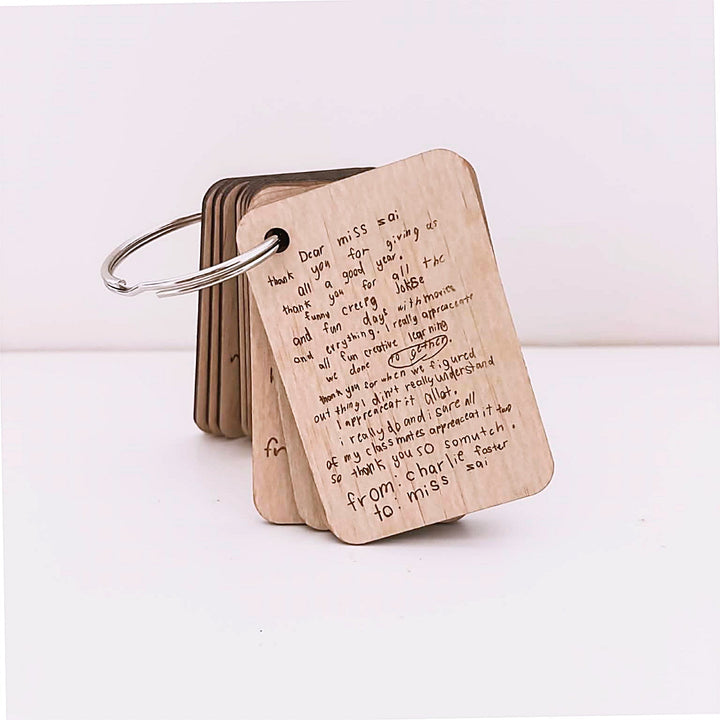 Dear miss sai
thank you for giving us
all a good year.
thank you for all the
funny creepy jokse
and fun days with movies
and erything. I really appreaceate
all fun creative learning
we done to gether.
thank you for when we figured
out thing I din't really understand
I appreaceat it allot.
i really do and i sure all
of my classmates appreaceat it two
so thank you so somuch.
from: charlie foster
to: miss sai
fr